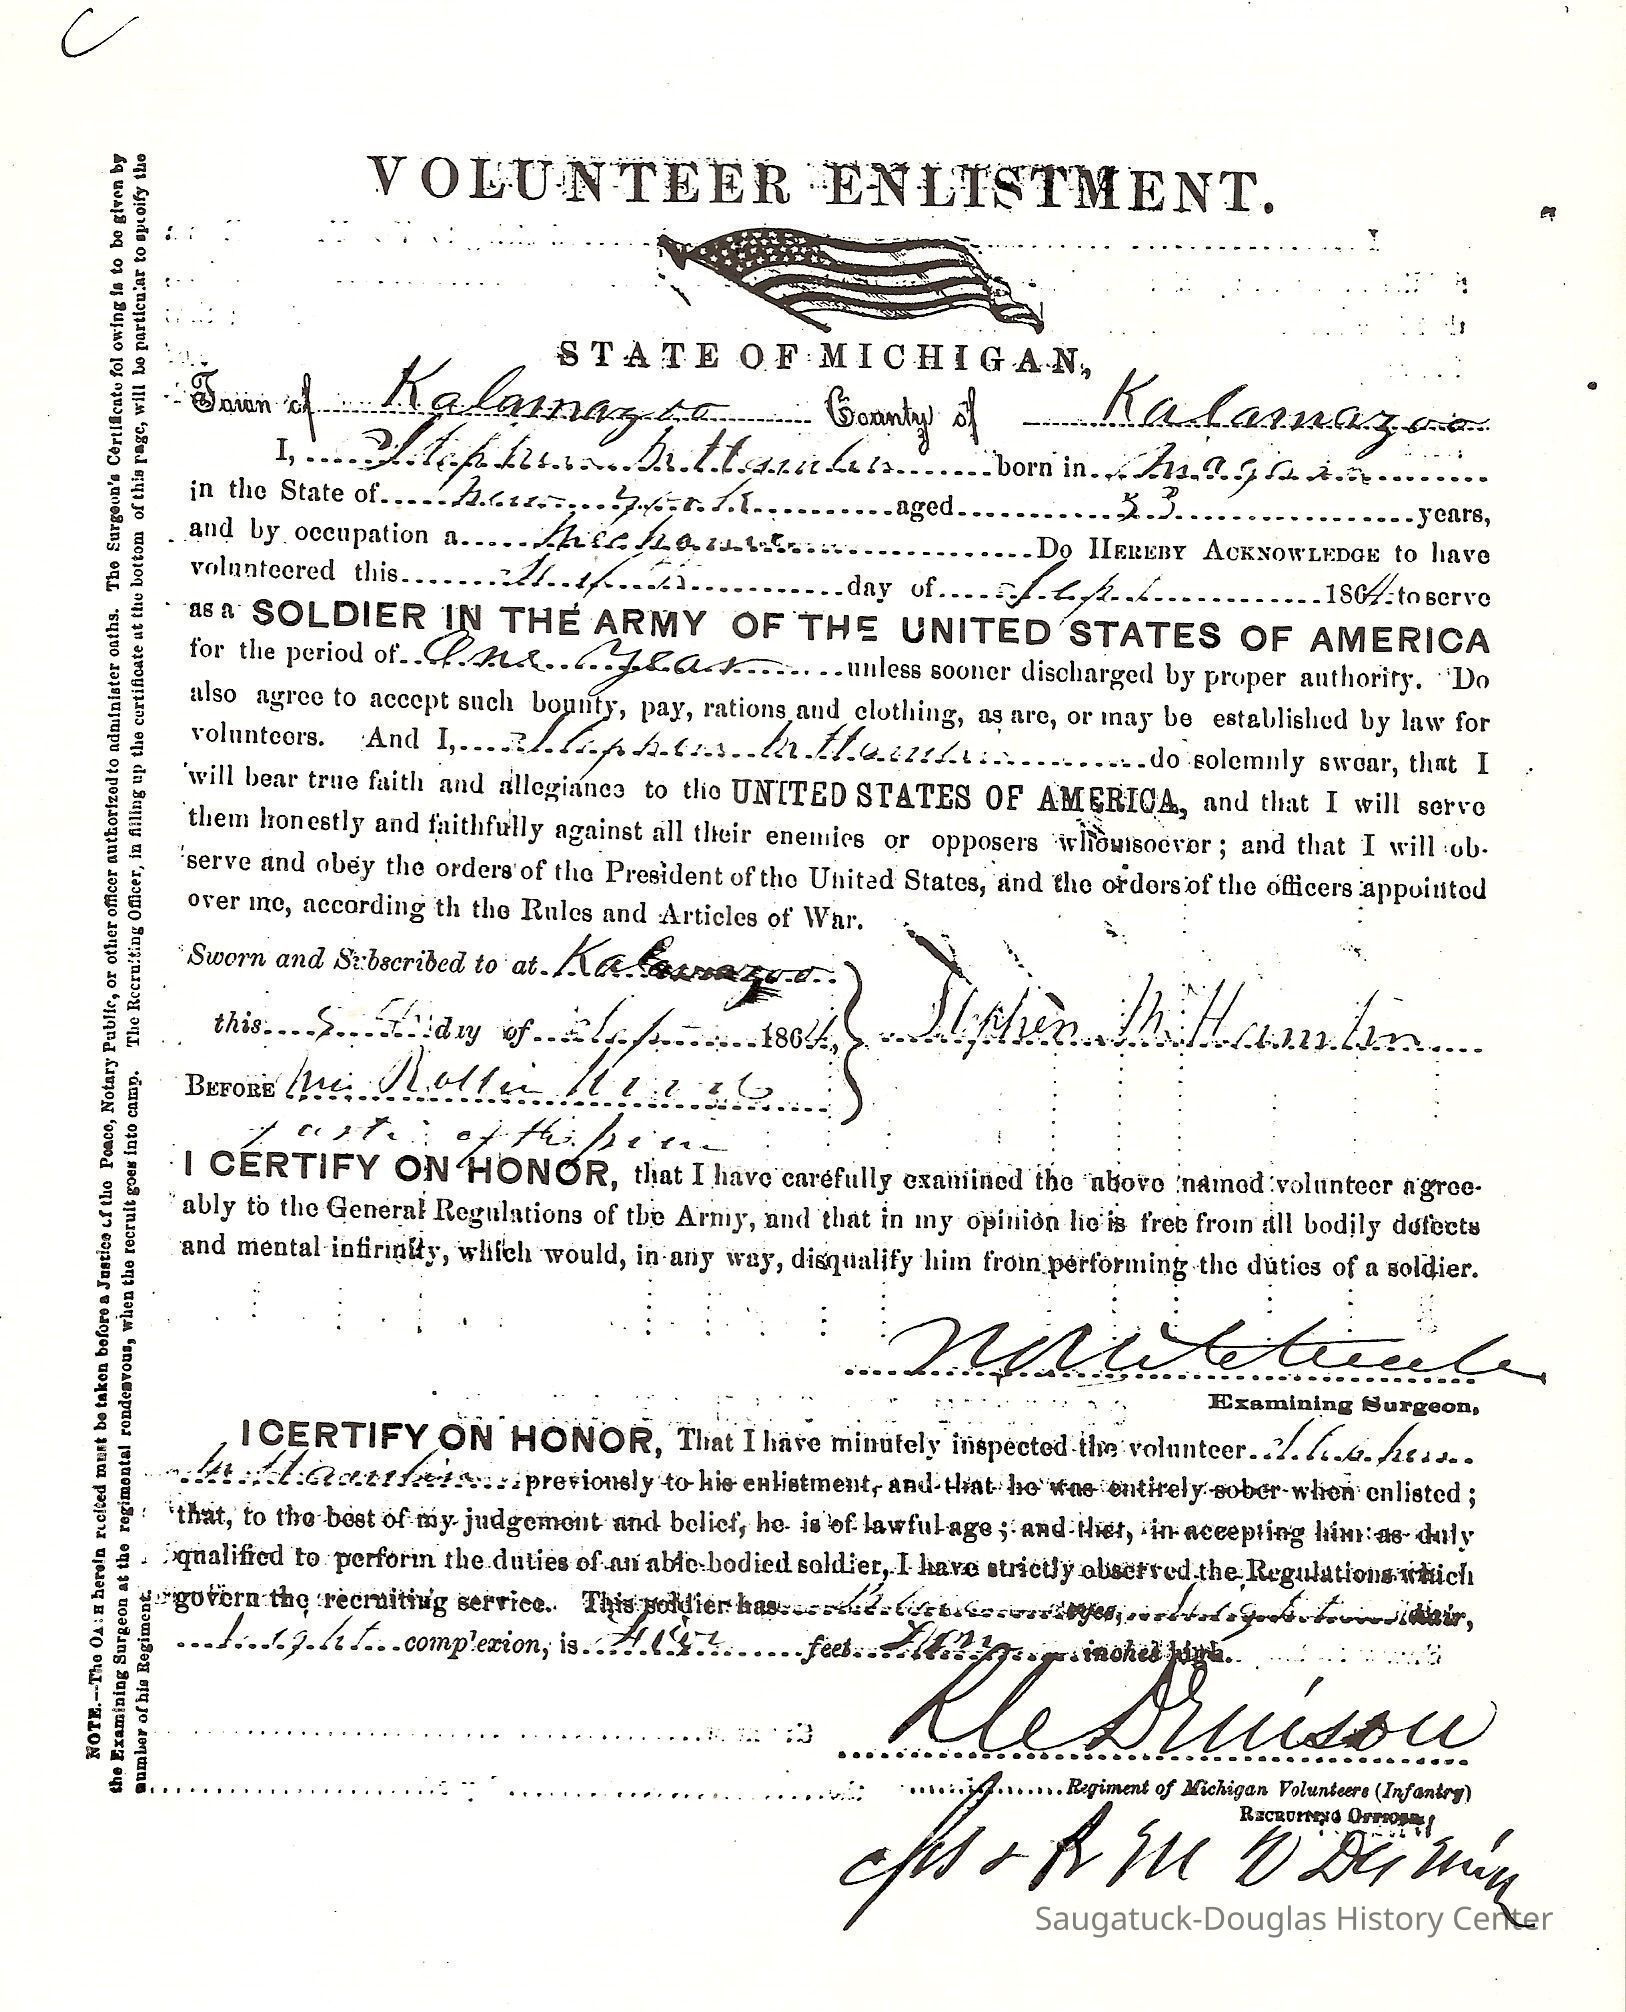 VOLUNTEER ENLISTMENT.
STATE OF MICHIGAN,
Town of Kalamazoo County of Kalamazoo
I, Stephen M Hamlin born in
in the State of New York aged 33 years,
and by occupation a Mechanic Do HEREBY ACKNOWLEDGE to have
volunteered this day of Sept 1864 to serve
as a SOLDIER IN THE ARMY OF THE UNITED STATES OF AMERICA
for the period of One Year unless sooner discharged by proper authority. Do
also agree to accept such bounty, pay, rations and clothing, as are, or may be established by law for
volunteers. And I, Stephen M Hamlin do solemnly swear, that I
will bear true faith and allegiance to the UNITED STATES OF AMERICA, and that I will serve
them honestly and faithfully against all their enemies or opposers whomsoever; and that I will ob-
serve and obey the orders of the President of the United States, and the orders of the officers appointed
over me, according th the Rules and Articles of War.
Sworn and Subscribed to at Kalamazoo
this 5 day of Sept 1864, Stephen M. Hamlin
BEFORE me Rollin
of the
I CERTIFY ON HONOR, that I have carefully examined the above named volunteer agree-
ably to the General Regulations of the Army, and that in my opinion he is free from all bodily defects
and mental infirmity, which would, in any way, disqualify him from performing the duties of a soldier.
Examining Surgeon,
I CERTIFY ON HONOR, That I have minutely inspected the volunteer Stephen
M Hamlin previously to his enlistment, and that he was entirely sober when enlisted;
that, to the best of my judgement and belief, he is of lawful age; and that, in accepting him as duly
qualified to perform the duties of an able-bodied soldier, I have strictly observed the Regulations which
govern the recruiting service. This soldier has eyes, hair,
Light complexion, is feet inches high.
Regiment of Michigan Volunteers (Infantry)
RECRUITING OFFICER,
NOTE.—The OATH herein recited must be taken before a Justice of the Peace, Notary Public, or other officer authorized to administer oaths. The Surgeon's Certificate following is to be given by
the Examining Surgeon at the regimental rendezvous, when the recruit goes into camp. The Recruiting Officer, in filling up the certificate at the bottom of this page, will be particular to specify the
number of his Regiment.
Saugatuck-Douglas History Center